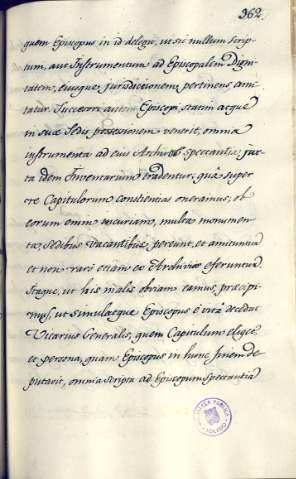 362.
quem Episcopus in id delegit, ut sic nullum scrip-
tum, aut Instrumentum ad Episcopalem Digni-
tatem, eiusque jurisdictionem pertinens amit-
tatur. Successori autem Episcopi, statim atque
in suæ Sedis possessionem venerit, omnia
instrumenta ad eius Archivos spectantia, jux-
ta idem Inventarium tradentur, qua super
re Capitulorum conscientias oneramus; ob
eorum enim incuriam, multa monumen-
ta, Sedibus vacantibus pereunt, et
et non raro etiam ex Archivis
Itaque, ut his malis obviam eamus, præcipi-
mus, ut simulatque Episcopus è vita decedat
Vicarius Generalis, quem Capitulum eliget
et persona, quam Episcopus in hunc finem de-
putavit, omnia scripta ad Episcopum spectantia
TOLEDO